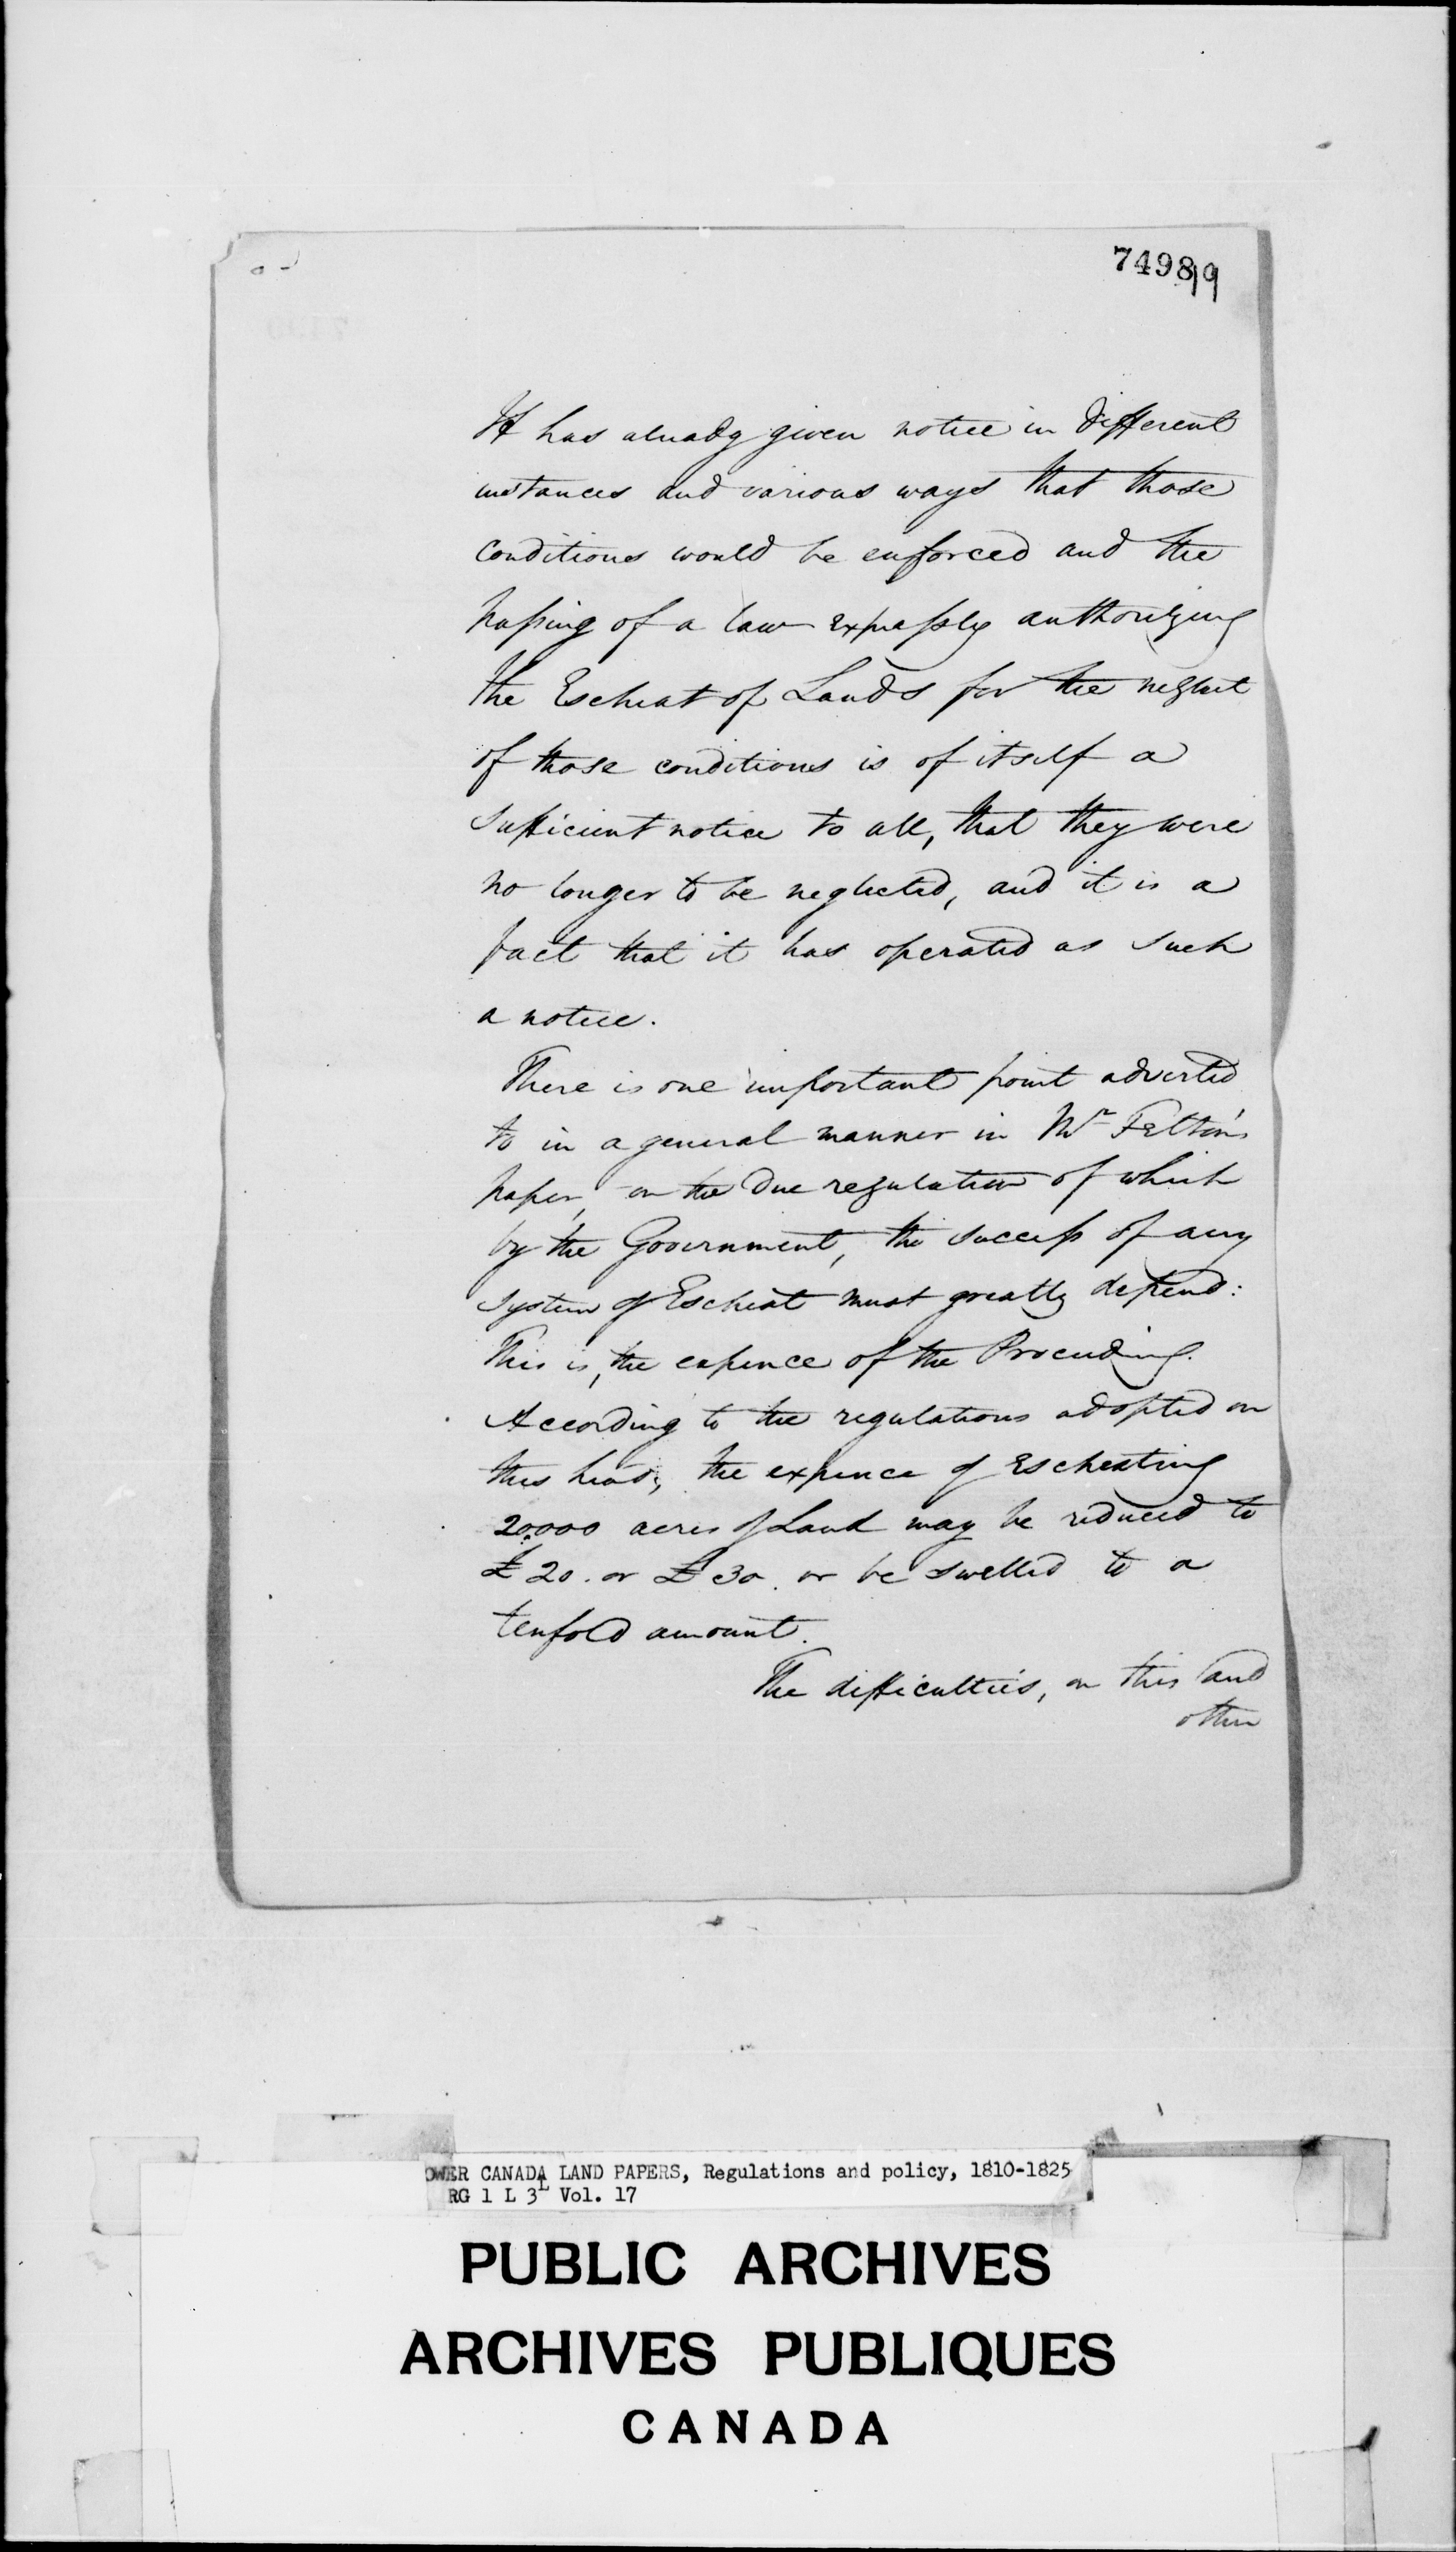 74989
It has already given notice in different
instances and various ways that those
conditions would be enforced and the
passing of a law expressly authorizing
the Escheat of Lands for the neglect
of those conditions is of itself a
sufficient notice to all, that they were
no longer to be neglected, and it is a
fact that it has operated as such
a notice.
There is one important point adverted
to in a general manner in Mr Felton's
paper, on the due regulation of which
by the Government, the success of any
system of Escheat must greatly depend:
This is, the expence of the Proceeding.
According to the regulations adopted on
this head, the expence of Escheating
20,000 acres of Land may be reduced to
£20. or £30. or be swelled to a
tenfold amount.
The difficulties, on this and
other
OWER CANADA LAND PAPERS, Regulations and policy, 1810-1825
RG 1 L 3L Vol. 17
PUBLIC ARCHIVES
ARCHIVES PUBLIQUES
CANADA